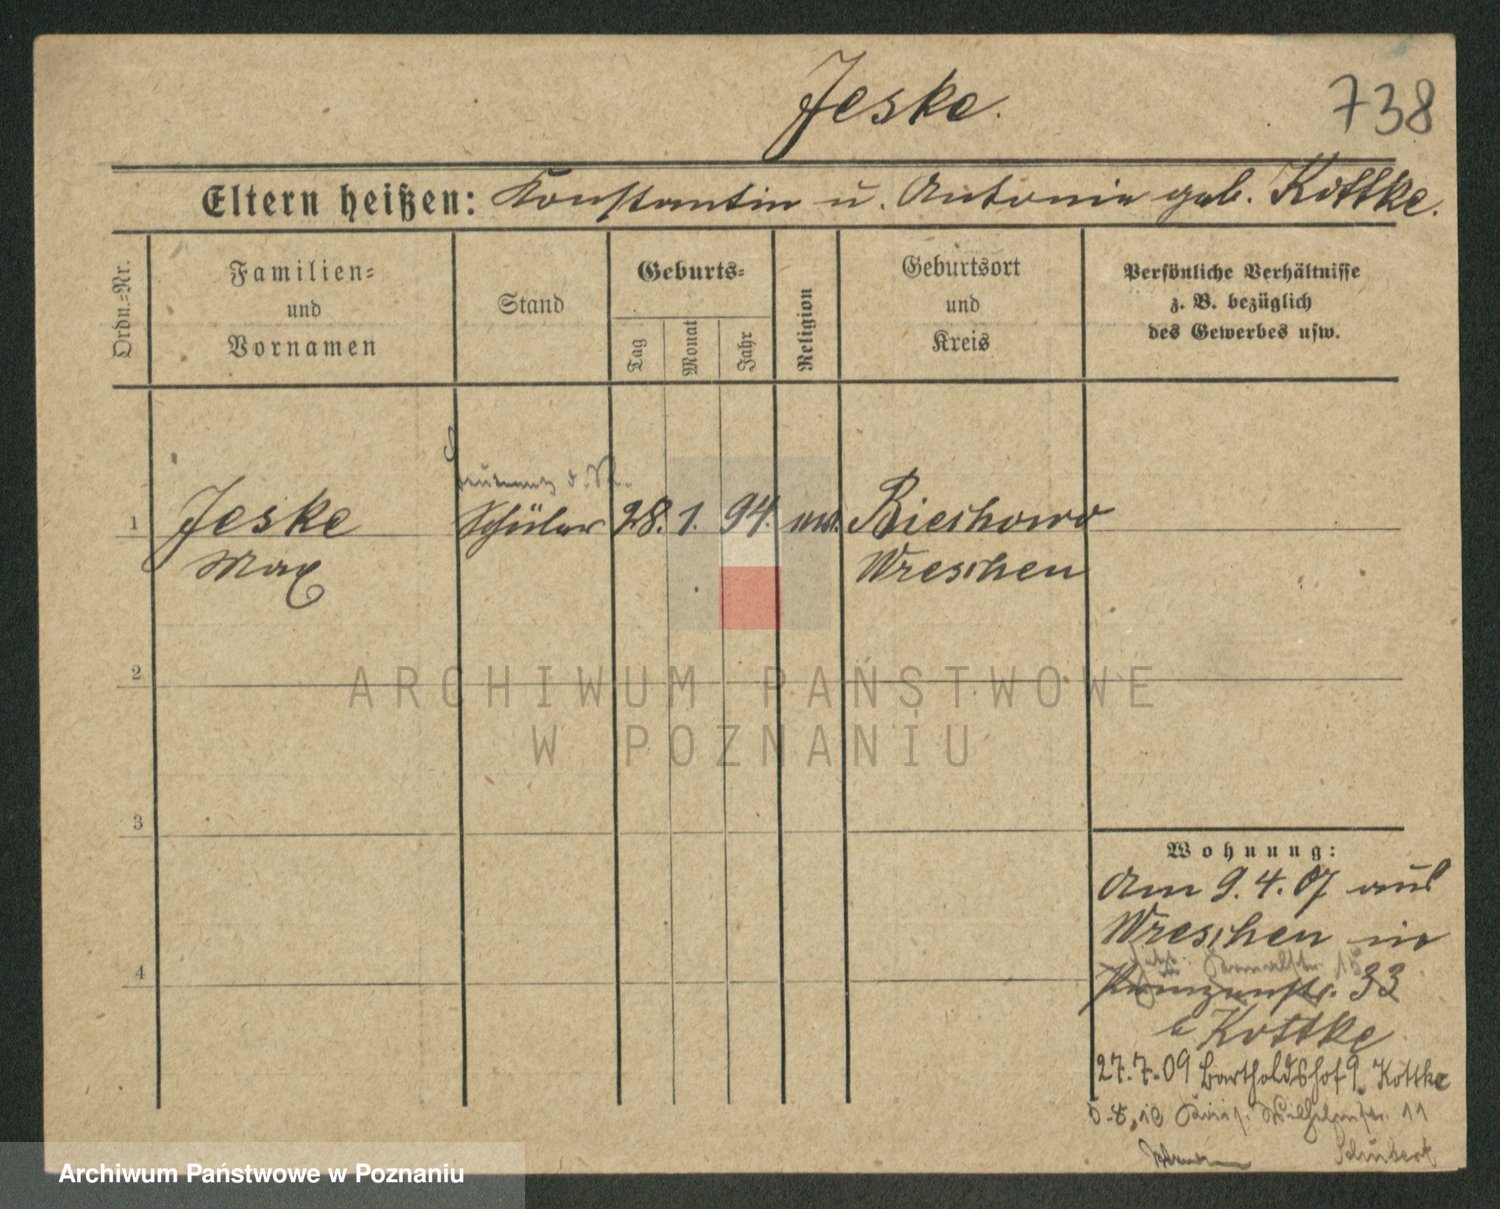 Jeske.
738
Eltern heißen: Konstantin u. Antonie geb. Kottke.
Ordn.=Nr.
Familien=
und
Vornamen
Stand
Geburts=
Tag
Monat
Jahr
Religion
Geburtsort
und
Kreis
Persönliche Verhältnisse
z. B. bezüglich
des Gewerbes usw.
Leutnant d. R.
1 Jeske Schüler 28. 1. 94. Biechowo
Max Wreschen
2
3
4
ARCHIWUM PAŃSTWOWE
W POZNANIU
Wohnung:
Am 9.4.07 aus
Wreschen in
15
33
b Kottke
27.7.09 Bartholdshof 9. Kottke
5.8.10 Wilhelmstr. 11
Schubert
Archiwum Państwowe w Poznaniu